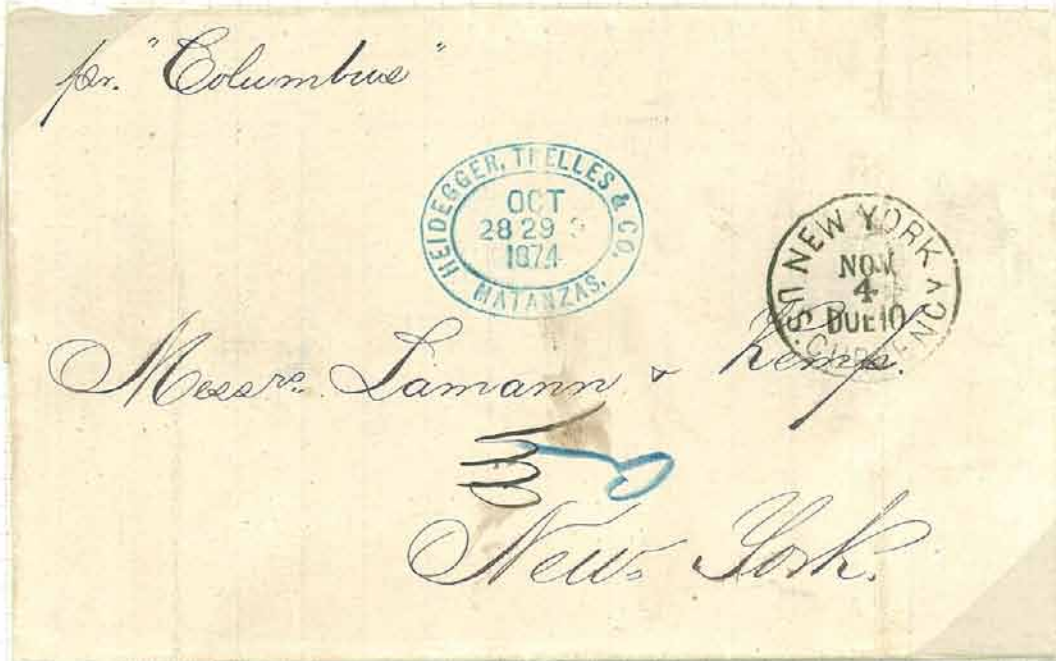 pr. "Columbus"
HEIDEGGER, TRELLES & CO.
OCT
28 29
1874
MATANZAS.
NEW YORK
NOV
4
DUE 10
U.S. CURRENCY
Messrs. Lamann & Kemp.
New York.